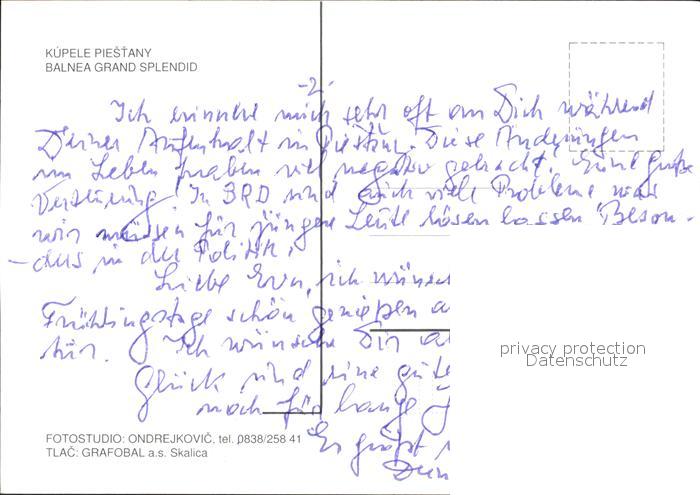 KÚPELE PIEŠŤANY
BALNEA GRAND SPLENDID
-2-
Ich erinnere mich sehr oft an Dich während
Deines Aufenthalt in Pieštan. Diese Änderungen
im Leben haben viel negativ gebracht. Eine große
Verstörung! In BRD sind auch viele Probleme was
wir müssen für jüngere Leute lösen lassen Beson-
-ders in der Politik.
Liebe Eva, ich wünsc
Frühlingstage schön genießen
tür. Ich wünsche Dir
Glück und eine gute
noch für lange
Es grüßt
FOTOSTUDIO: ONDREJKOVIČ, tel. 0838/258 41
TLAČ: GRAFOBAL a.s. Skalica
privacy protection
Datenschutz